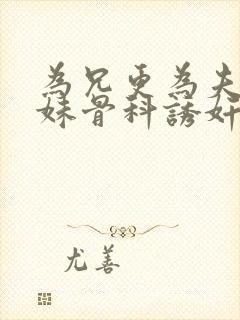 為兄更為夫
妹骨科誘奸
尤善